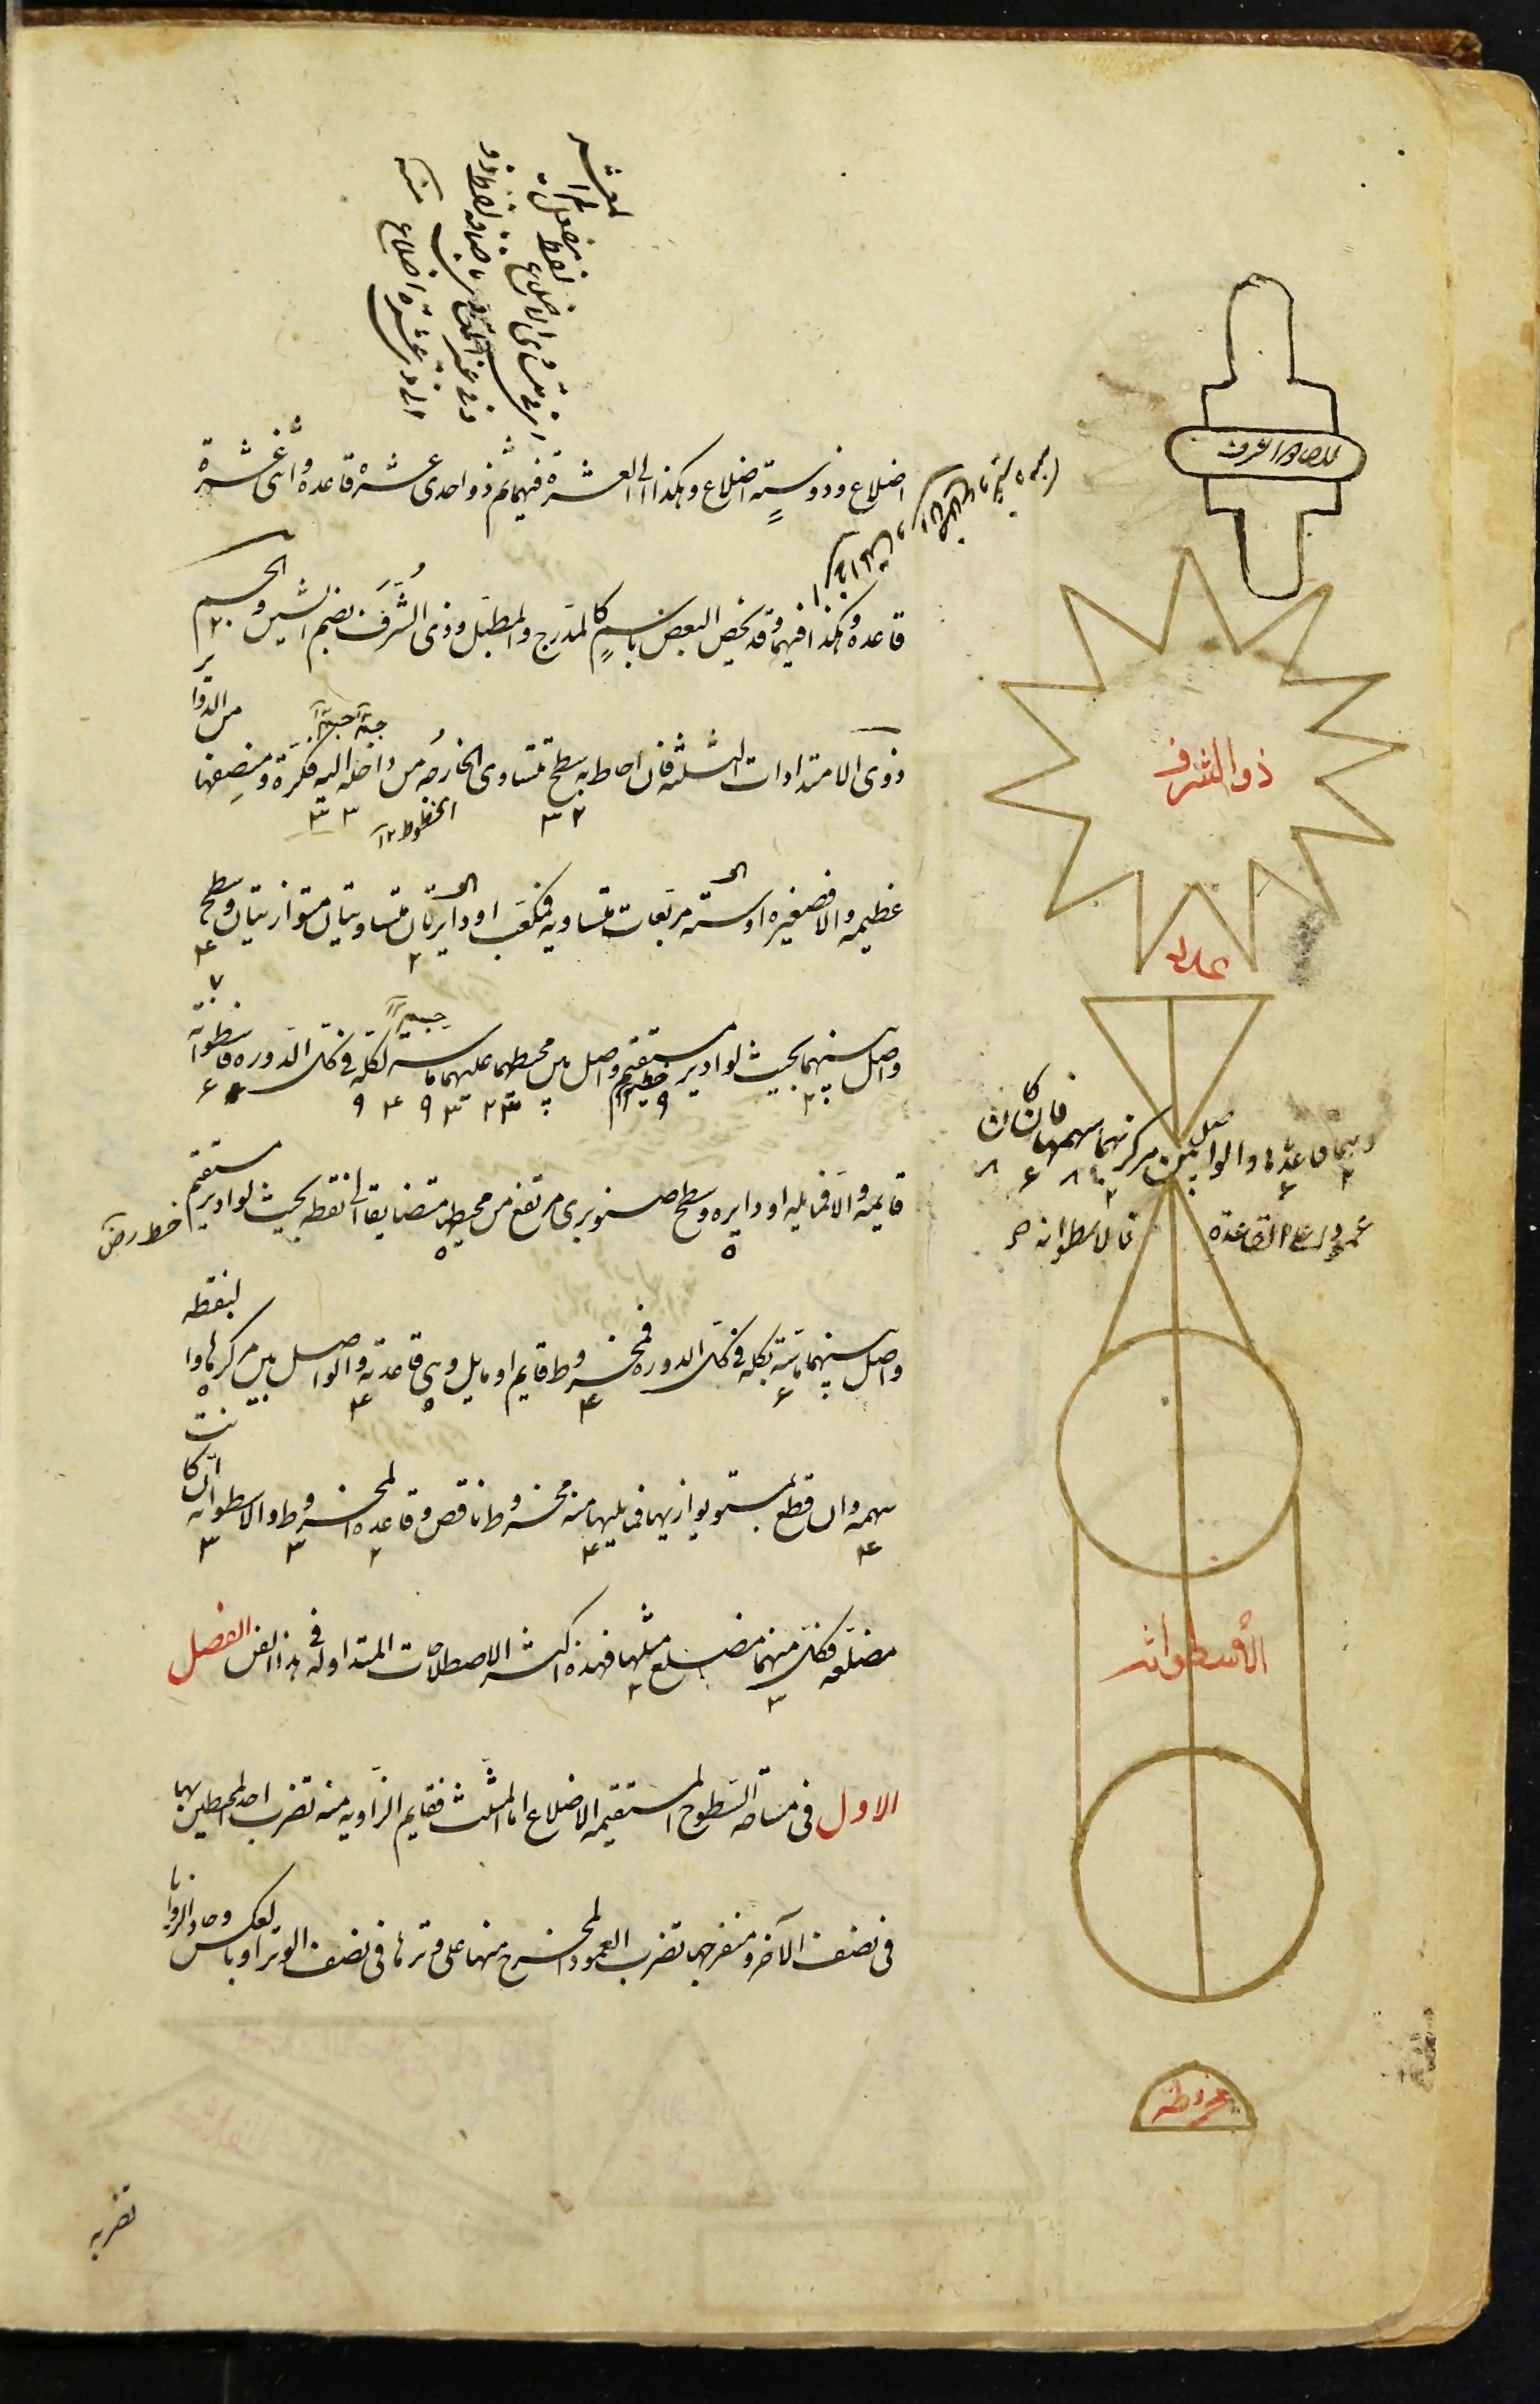 اضلاع وذو ستة اضلاع وهكذا الى العشرة فيهما ثم ذو احدى عشرة قاعدة واثنى عشرة
قاعدة وهكذا فيهما وقد يخص البعض باسم كالمدرج والمطبل وذى الشرف بضم الشين والجسم
ذوى الامتدادات الثلثة فان احاط به سطح يتساوى الخارجة من داخله اليه فكرة ومنصفها من الدواير
الخطوط
عظيمة والا فصغيرة او ستة مربعات متساوية فمكعب او دايرتان متساويتان متوازيتان وسطح
واصل بينهما بحيث لو ادير مستقيم واصل بين محيطهما عليهما ماسه بكله فى كل الدورة فاسطوانة
وهما قاعدتاها والواصل بين مركزيهما سهمها فان كان
عمودا على القاعدة فالاسطوانة
قايمة والا فمايلة او دايرة وسطح صنوبرى مرتفع من محيطها متضايقا الى نقطة بحيث لو ادير مستقيم
واصل بينهما ماسه بكله فى كل الدورة فمخروط قايم او مايل وهى قاعدته والواصل بين مركزها والنقطة
سهمه وان قطع بمستو يوازيها فما يليها منه مخروط ناقص وقاعدة المخروط والاسطوانة ان كانت
مضلعة فكل منهما مضلع مثلها فهذه اكثر الاصطلاحات المتداولة فى هذا الفن الفصل
الاول فى مساحة السطوح المستقيمة الاضلاع اما المثلث فقايم الزاوية منه تضرب احد المحيطين بها
فى نصف الآخر ومنفرجها تضرب العمود المخرج منها على وترها فى نصف الوتر او بالعكس وحاد الزوايا
تضربه
ذو الشرف
الأسطوانة
مخروطة